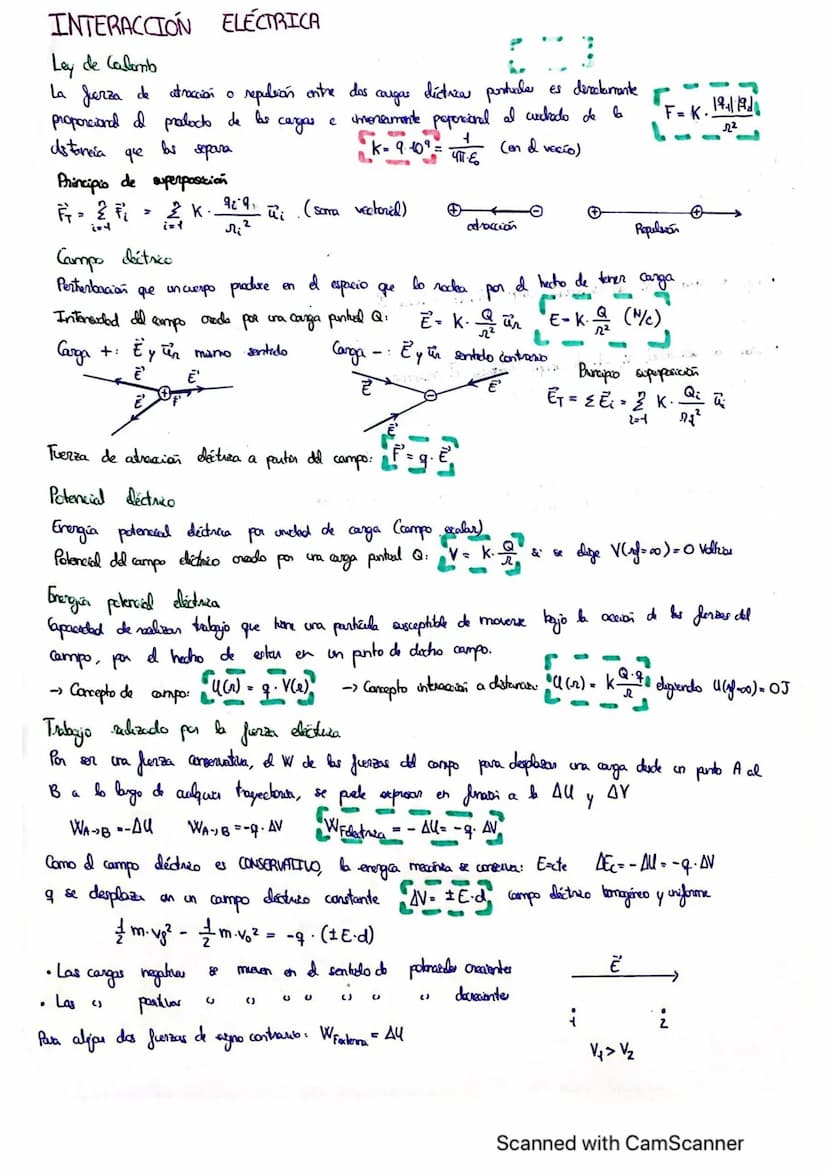 INTERACCIÓN ELÉCTRICA
Ley de Coulomb
La fuerza de atracción o repulsión entre dos cargas eléctricas puntuales es directamente
proporcional al producto de las cargas e inversamente proporcional al cuadrado de la
distancia que las separa
F = K · |q₁| |q₂| / r²
K = 9·10⁹ = 1 / 4π·ε₀ (en el vacío)
Principio de superposición
F⃗T = Σ F⃗i = Σ K · qi·q / ri² u⃗i (suma vectorial)
i=1 i=1
atracción Repulsión
Campo eléctrico
Perturbación que un cuerpo produce en el espacio que lo rodea por el hecho de tener carga
Intensidad del campo creado por una carga puntual Q: E⃗ = K · Q/r² u⃗r E = K · Q/r² (N/C)
Carga +: E⃗ y u⃗r mismo sentido Carga -: E⃗ y u⃗r sentido contrario
Principio superposición
E⃗T = Σ E⃗i = Σ K · Qi/ri² u⃗i
i=1
E⃗ E⃗ E⃗ F⃗ + E⃗ E⃗ E⃗ -
Fuerza de atracción eléctrica a partir del campo: F⃗ = q · E⃗
Potencial eléctrico
Energía potencial eléctrica por unidad de carga (campo escalar)
Potencial del campo eléctrico creado por una carga puntual Q: V = K · Q/r si se elige V(ref=∞) = 0 Voltios
Energía potencial eléctrica
Capacidad de realizar trabajo que tiene una partícula susceptible de moverse bajo la acción de las fuerzas del
campo, por el hecho de estar en un punto de dicho campo.
→ Concepto de campo: U(r) = q · V(r) → Concepto interacción a distancia: U(r) = K Q·q/r eligiendo U(ref=∞) = 0J
Trabajo realizado por la fuerza eléctrica
Por ser una fuerza conservativa, el W de las fuerzas del campo para desplazar una carga desde un punto A al
B a lo largo de cualquier trayectoria, se puede expresar en función a la ΔU y ΔV
WA→B = -ΔU WA→B = -q · ΔV WFeléctrica = - ΔU = -q · ΔV
Como el campo eléctrico es CONSERVATIVO, la energía mecánica se conserva: E=cte ΔEc = - ΔU = -q · ΔV
q se desplaza en un campo eléctrico constante ΔV = ±E·d campo eléctrico homogéneo y uniforme
½ m·vf² - ½ m·v₀² = -q · (±E·d)
• Las cargas negativas se mueven en el sentido de potenciales crecientes
• Las " positivas " " " " " " " decreciente
E⃗
1 2
V₁ > V₂
Para alejar dos fuerzas de signo contrario: WFexterna = ΔU
Scanned with CamScanner